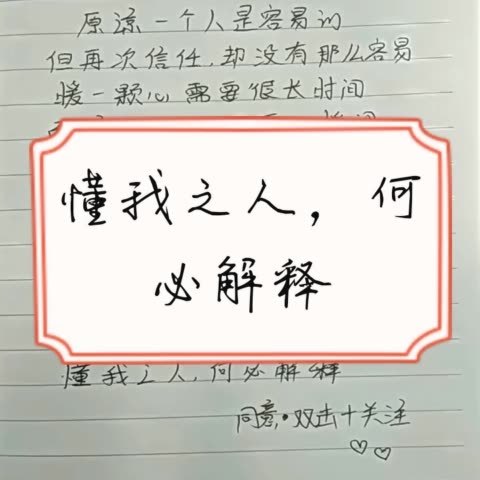 原谅一个人是容易的
但再次信任,却没有那么容易
暖一颗心需要很长时间
懂我之人，何
必解释
懂我之人,何必解释
同意•双击+关注